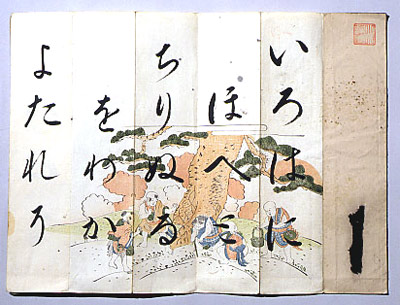 いろはに
ほへと
ちりぬる
をわか
よたれそ